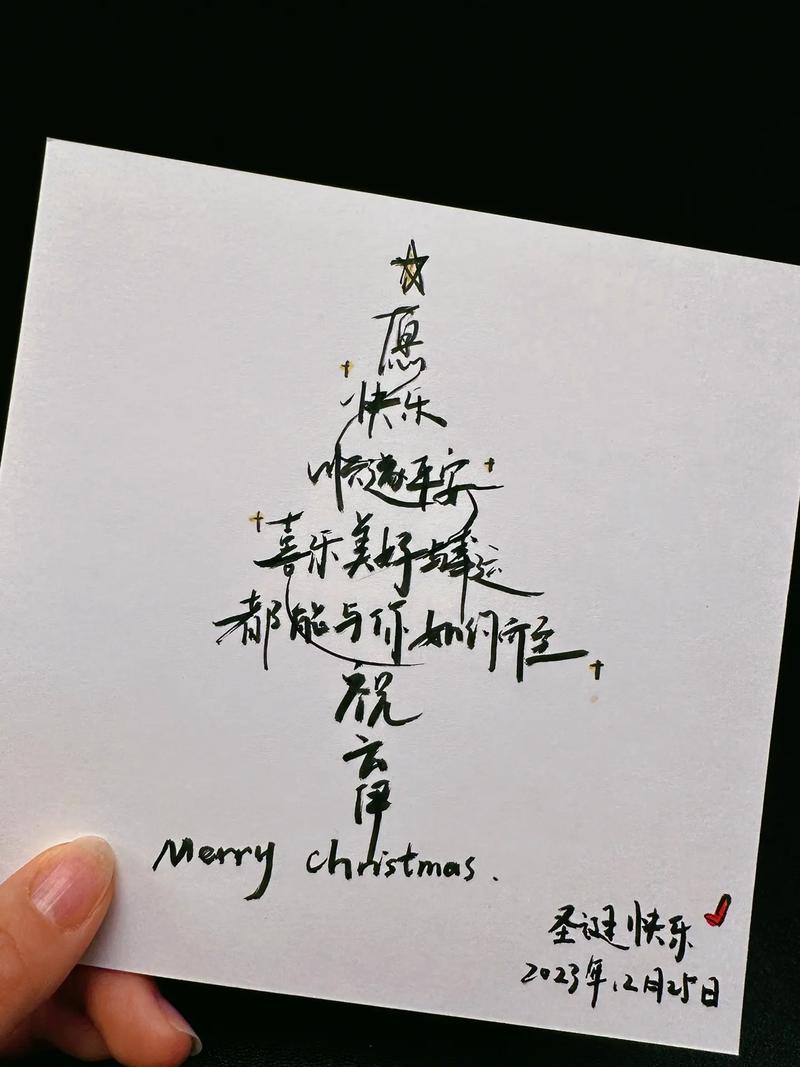 愿
快乐
顺遂平安
喜乐美好与幸运
都能与你如约而至
祝
云
Merry christmas.
圣诞快乐
2023年.12月25日